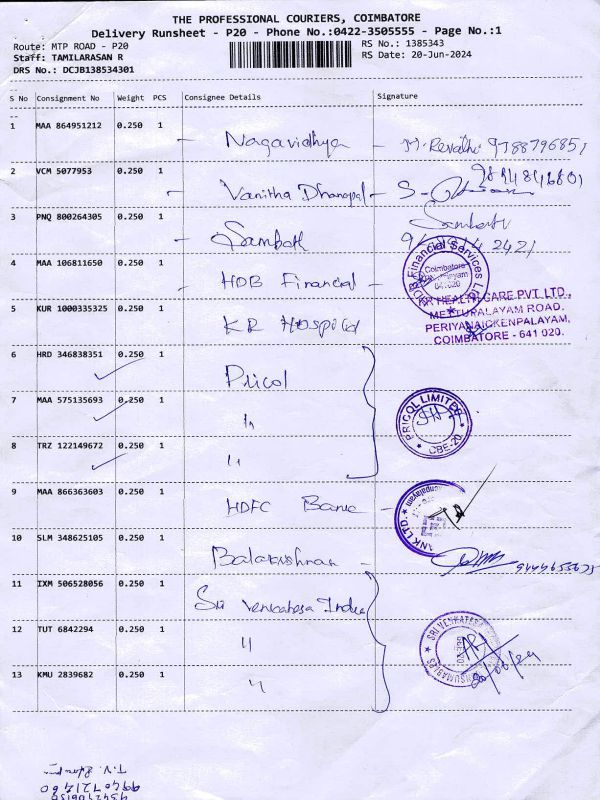 THE PROFESSIONAL COURIERS, COIMBATORE
Delivery Runsheet - P20 - Phone No.:0422-3505555 - Page No.:1
Route: MTP ROAD - P20
RS No.: 1385343
Staff: TAMILARASAN R
RS Date: 20-Jun-2024
DRS No.: DCJB138534301
S No Consignment No Weight PCS Consignee Details Signature
1 MAA 864951212 0.250 1 - Nagavidhya - M. Revathi 9788796851
2 VCM 5077953 0.250 1 - Vanitha Dhanapal - S-
3 PNQ 800264305 0.250 1 - Sambath Sambath
4 MAA 106811650 0.250 1 HDB Financial - HDB Financial Services Ltd Coimbatore 641020
5 KUR 1000335325 0.250 1 KR Hospital HEALTHCARE PVT. LTD.,
METTUPALAYAM ROAD,
PERIYANAICKENPALAYAM,
COIMBATORE - 641 020.
6 HRD 346838351 0.250 1 Pricol
7 MAA 575135693 0.250 1 〃 PRICOL LIMITED CBE-20
8 TRZ 122149672 0.250 1 〃
9 MAA 866363603 0.250 1 HDFC Bank BANK LTD.
10 SLM 348625105 0.250 1 Balakrishnan -
11 IXM 506528056 0.250 1 Sri Venkatesa Indus
12 TUT 6842294 0.250 1 〃 SRI VENKATESA
13 KMU 2839682 0.250 1 〃 20/06/24